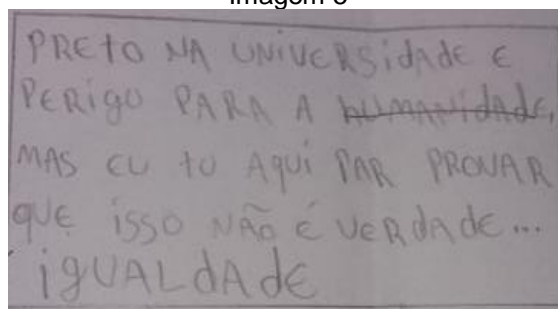 PRETO NA UNIVERSIDADE E
PERIGO PARA A HUMANIDADE,
MAS EU TO AQUI PAR PROVAR
QUE ISSO NÃO É VERDADE...
IGUALDADE